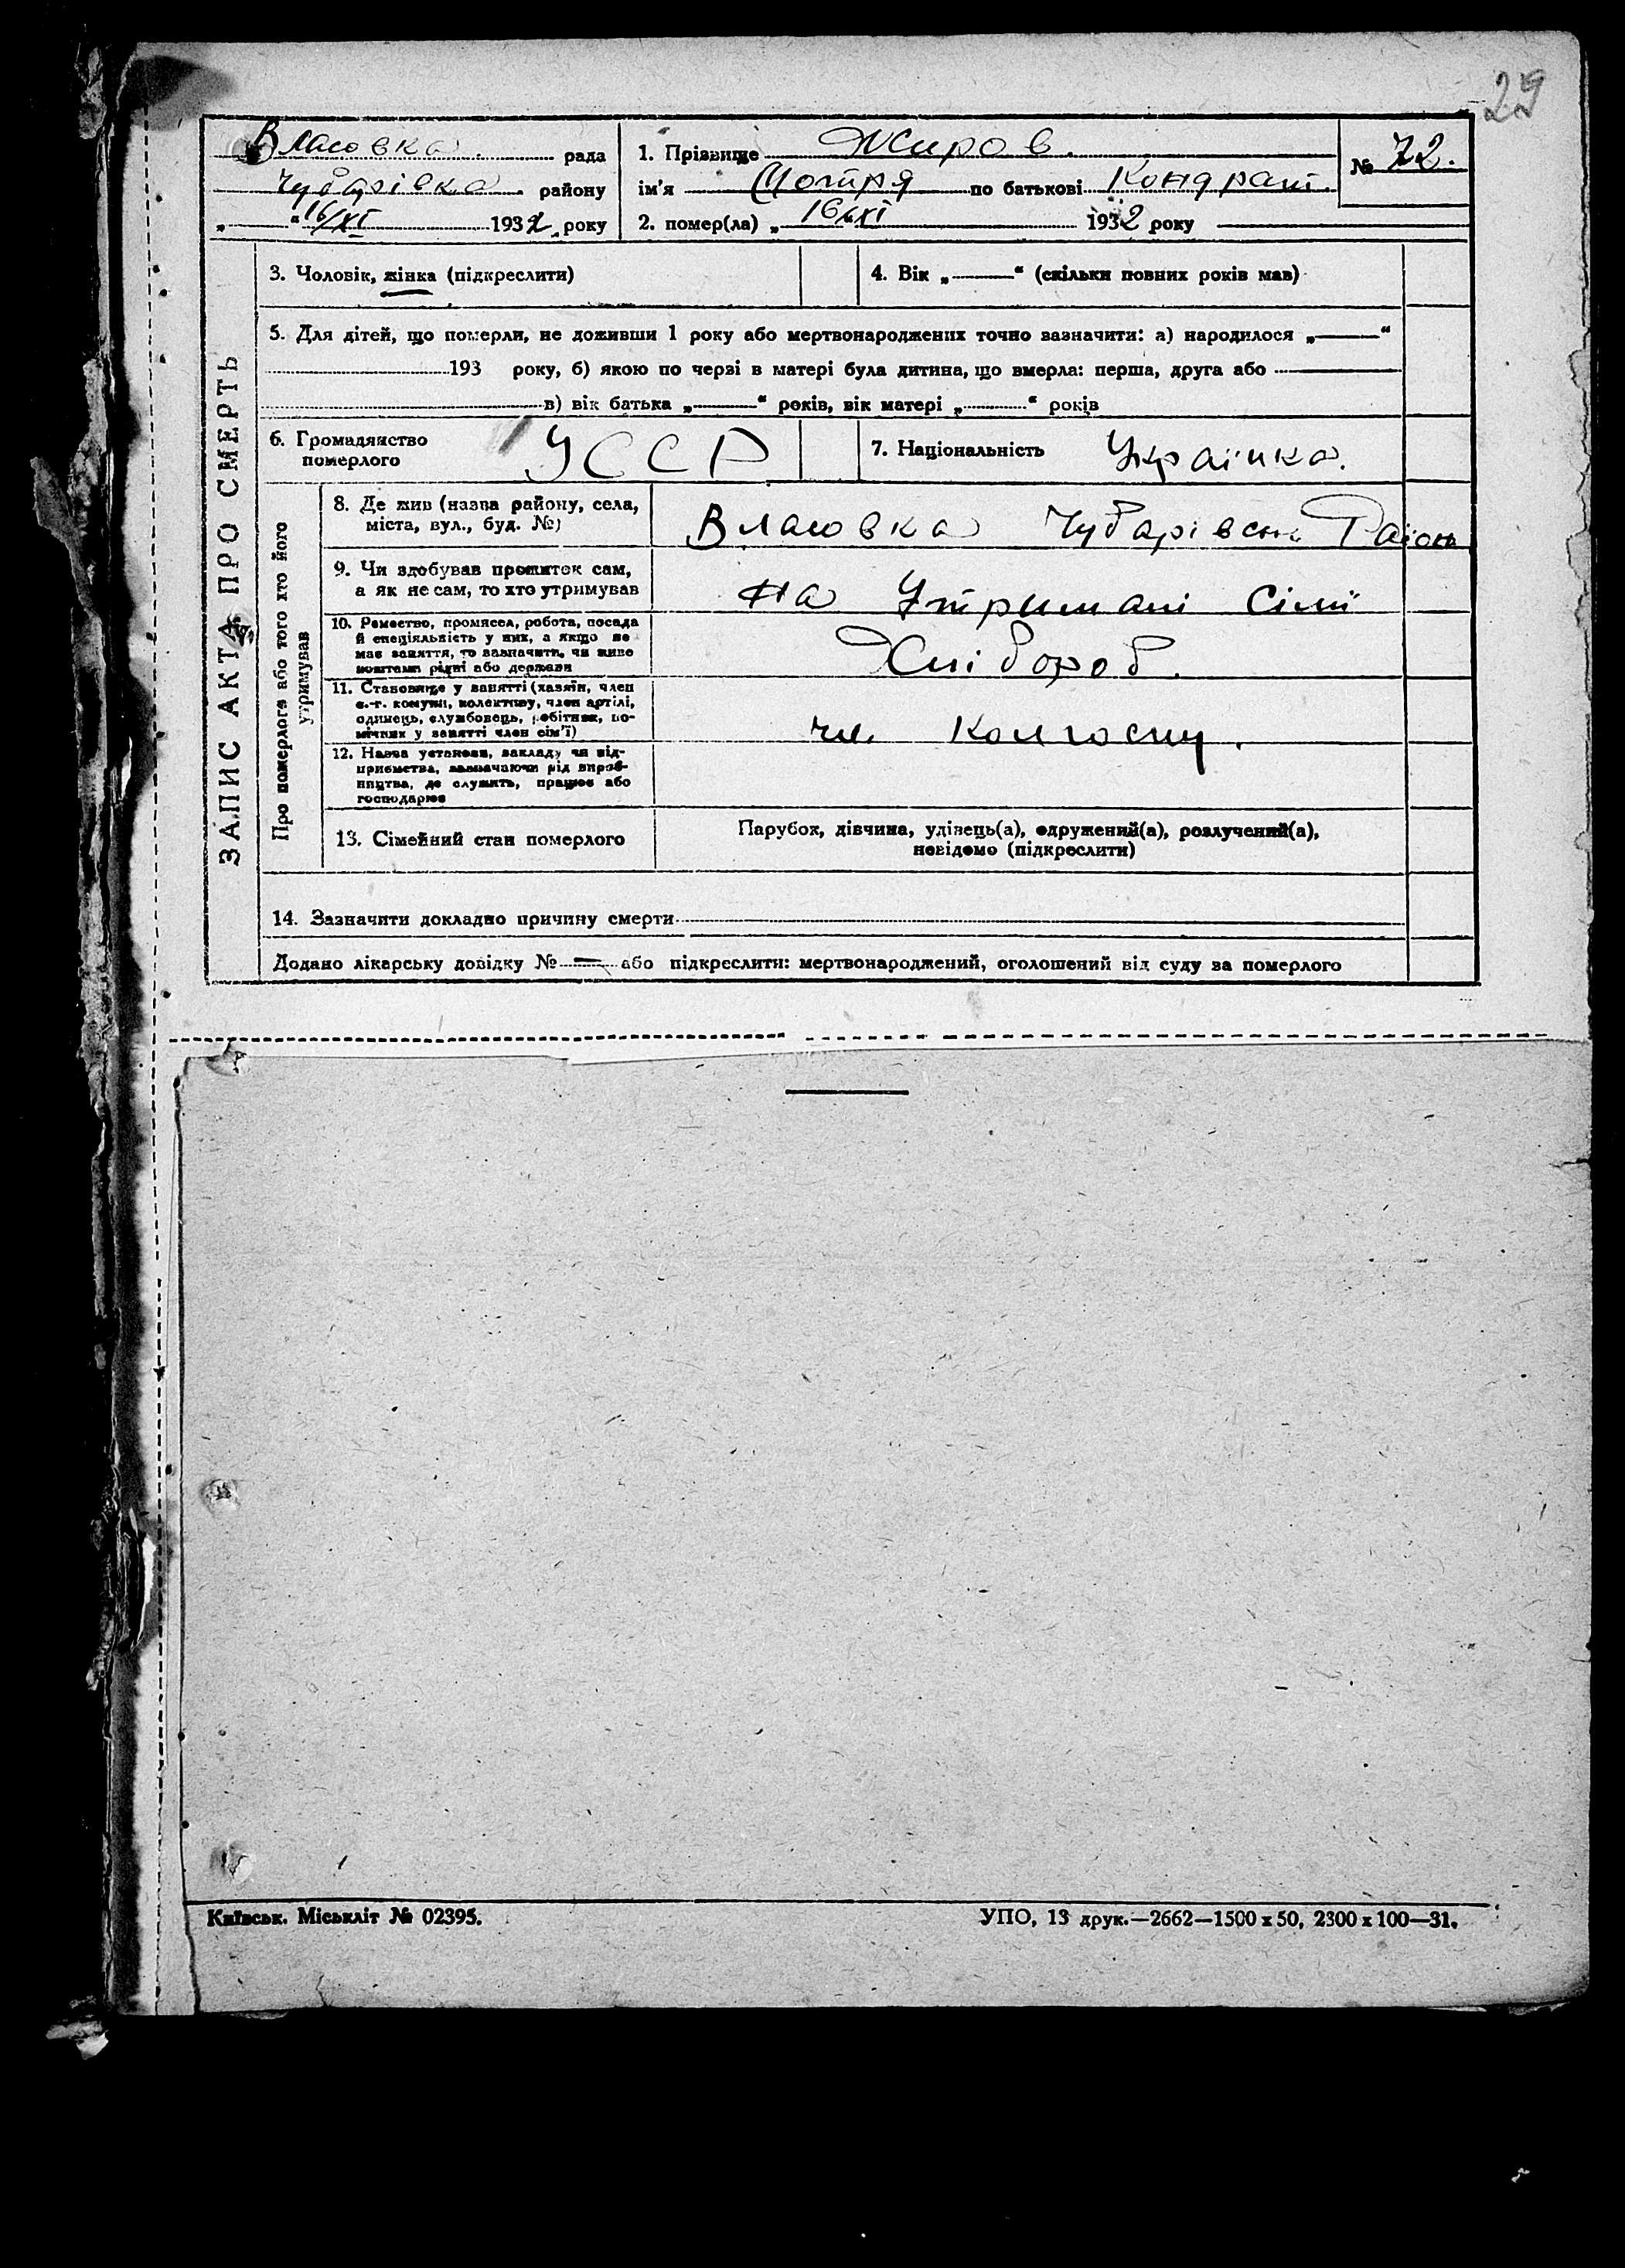 29
Власовка. рада
Чубарівка. району
„ “ 16/XI 1932 року
1. Прізвище Жиров.
ім'я Мотря по батькові Кондрат.
2. помер(ла) „ 16/XI 1932 року
№ 72.
ЗАПИС АКТА ПРО СМЕРТЬ
3. Чоловік, жінка (підкреслити)
4. Вік „ “ (скільки повних років мав)
5. Для дітей, що померли, не доживши 1 року або мертвонароджених точно зазначити: а) народилося „ “
193 року, б) якою по черзі в матері була дитина, що вмерла: перша, друга або
в) вік батька „ “ років, вік матері „ “ років
6. Громадянство
померлого
УССР
7. Національність Українка.
Про померлого або того хто його
утримував
8. Де жив (назва району, села,
міста, вул., буд. №)
Власовка Чубарівськ Район
9. Чи здобував прожиток сам,
а як не сам, то хто утримував
на Утримані Сімї
10. Ремество, промисел, робота, посада
й спеціяльність у них, а якщо не
має заняття, то зазначити, чи живе
коштами рідні або держави
Хлібороб.
11. Становище у занятті (хазяїн, член
с.-г. комуни, колективу, член артілі,
одинець, службовець, робітник, по-
мічник у занятті член сім'ї)
чл. Колгоспу.
12. Назва установи, закладу чи під-
приємства, зазначаючи рід вироб-
ництва, де служить, працює або
господарює
13. Сімейний стан померлого
Парубок, дівчина, удівець(а), одружений(а), розлучений(а),
невідомо (підкреслити)
14. Зазначити докладно причину смерти
Додано лікарську довідку № — або підкреслити: мертвонароджений, оголошений від суду за померлого
Київськ. Міськліт № 02395.
УПО, 13 друк.—2662—1500 х 50, 2300 х 100—31.